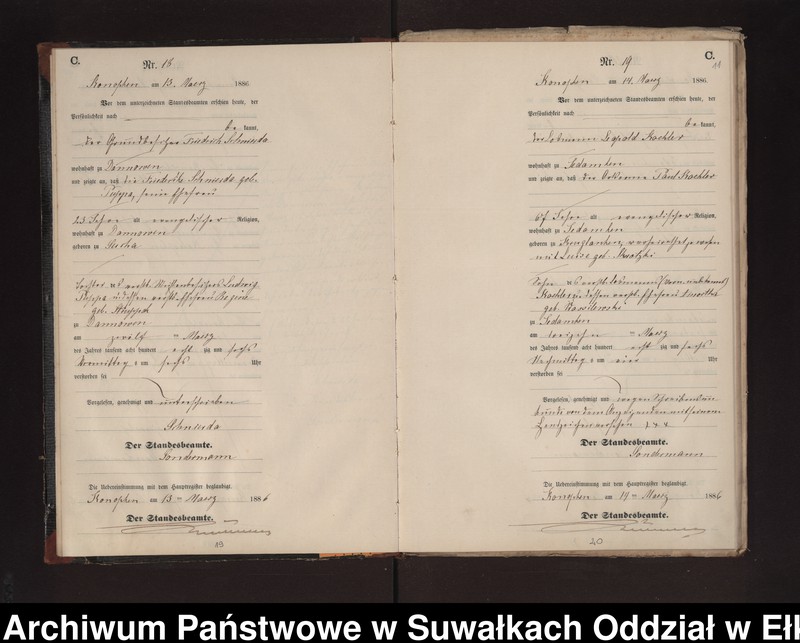 C.
Nr. 18
Konopken am 13. Maerz 1886
Vor dem unterzeichneten Standesbeamten erschien heute, der
Persönlichkeit nach
be kannt,
der Grundbesitzer Friedrich Schmieda
wohnhaft zu Dannowen
und zeigte an, daß die Friederike Schmieda geb.
Puppa, seine Ehefrau
23 Jahre alt evangelischer Religion,
wohnhaft zu Dannowen
geboren zu
Tochter des verst. Ludwig
Puppa u dessen verst. Ehefrau Regine
geb.
zu Dannowen
am zwölf ten Maerz
des Jahres tausend acht hundert acht zig und sechs
Vormittag s um sechs Uhr
verstorben sei
Vorgelesen, genehmigt und unterschrieben
Schmieda
Der Standesbeamte.
Sondermann
Die Uebereinstimmung mit dem Hauptregister beglaubigt.
Konopken am 13 ten Maerz 1886
Der Standesbeamte.
19
C.
Nr. 19
Konopken am 14. Maerz 1886.
Vor dem unterzeichneten Standesbeamten erschien heute, der
Persönlichkeit nach
be kannt,
der Losmann Leopold Kachler
wohnhaft zu Sdamken
und zeigte an, daß der Paul Kachler
67 Jahre alt evangelischer Religion,
wohnhaft zu Sdamken
geboren zu verheirathet gewesen
mit Luise geb.
Sohn des verst. Losmann (Vorn. unbekannt)
Kachler u. dessen verst. Ehefrau
geb.
zu Sdamken
am dreizehn ten Maerz
des Jahres tausend acht hundert acht zig und sechs
Nachmittag s um vier Uhr
verstorben sei
Vorgelesen, genehmigt und wegen Schreibensun
kunde von dem Anzeigenden mit seinem
Handzeichen versehen +++
Der Standesbeamte.
Sondermann
Die Uebereinstimmung mit dem Hauptregister beglaubigt.
Konopken am 14 ten Maerz 1886
Der Standesbeamte.
20
Archiwum Państwowe w Suwałkach Oddział w Eł